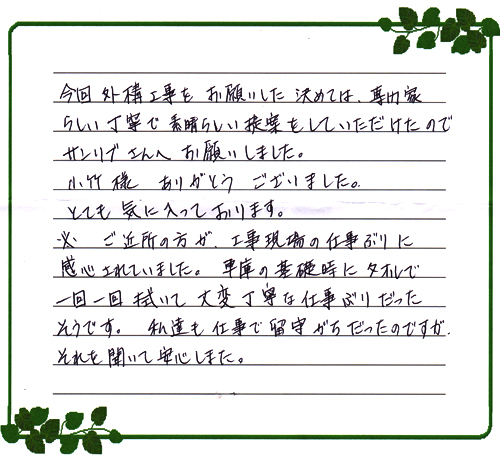 今回 外構工事を お願いした 決めては、専門家
らしい丁寧で 素晴らしい提案をしていただけたので
サンリブさんへ お願いしました。
小竹様 ありがとう ございました。
とても 気に入って おります。
※ ご近所の方が、工事現場の仕事ぶりに
感心されていました。車庫の基礎時にタオルで
一回一回 拭いて 大変丁寧な仕事ぶりだった
そうです。私達も仕事で留守がちだったのですが、
それを聞いて安心しました。